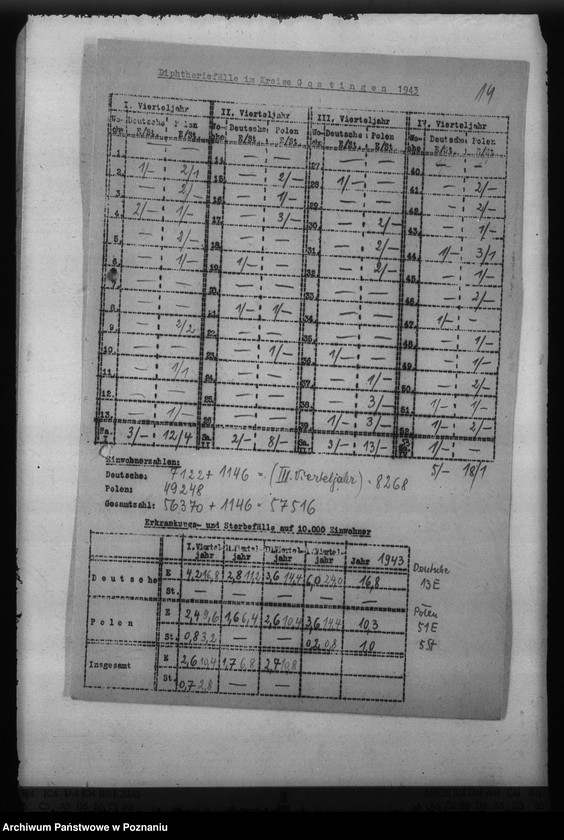 Diphtheriefälle im Kreise Gostingen 1943
14
I. Vierteljahr II. Vierteljahr III. Vierteljahr IV. Vierteljahr
Wo- Deutsche Polen Wo- Deutsche Polen Wo- Deutsche Polen Wo- Deutsche Polen
che E/St. E/St. che E/St. E/St. che E/St. E/St. che E/St. E/St.
1. — — 14. — — 27. — — 40. — —
2. 1/- 2/1 15. — 2/- 28. 1/- — 41. — 2/-
3. — 2/- 16. — 1/- 29. — — 42. — 2/-
4. 2/- 1/- 17. — 3/- 30. — 2/- 43. — 1/-
5. — 2/- 18. — — 31. — 2/- 44. 1/- 3/1
6. — 1/- 19. 1/- — 32. — 2/- 45. — 1/-
7. — — 20. — — 33. — — 46. — 2/-
8. — — 21. 1/- 1/- 34. — — 47. 1/- —
9. — 2/2 22. — — 35. — — 48. — 1/-
10. — — 23. — 1/- 36. 1/- — 49. — 1/-
11. — 1/1 24. — — 37. — 1/- 50. — 2/-
12. — — 25. — — 38. — 3/- 51. 1/- 1/-
13. — 1/- 26. — — 39. 1/- 3/- 52. 1/- 2/-
Sa. I 3/- 12/4 Sa. II 2/- 8/- Sa. III 3/- 13/- 1/- —
5/- 18/1
Einwohnerzahlen:
Deutsche: 7122 + 1146 = (III. Vierteljahr) = 8268
Polen: 49248
Gesamtzahl: 56370 + 1146 = 57516
Erkrankungs- und Sterbefälle auf 10.000 Einwohner
I. Viertel- II. Viertel- III. Viertel- IV. Viertel- Jahr 1943
jahr jahr jahr jahr
Deutsche E 4,2 16,8 2,8 11,2 3,6 14,4 6,0 24,0 16,8
St. — — — — —
Polen E 2,4 9,6 1,6 6,4 2,6 10,4 3,6 14,4 10,3
St. 0,8 3,2 — — 0,2 0,8 1,0
Insgesamt E 2,6 10,4 1,7 6,8 2,7 10,8
St. 0,7 2,8 — —
Deutsche
13 E
—
Polen
51 E
5 St
Archiwum Państwowe w Poznaniu